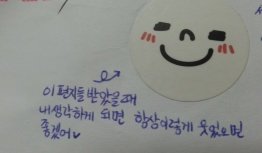 이 편지를 받았을때
내생각하게 되면 항상이렇게 웃었으면
좋겠어